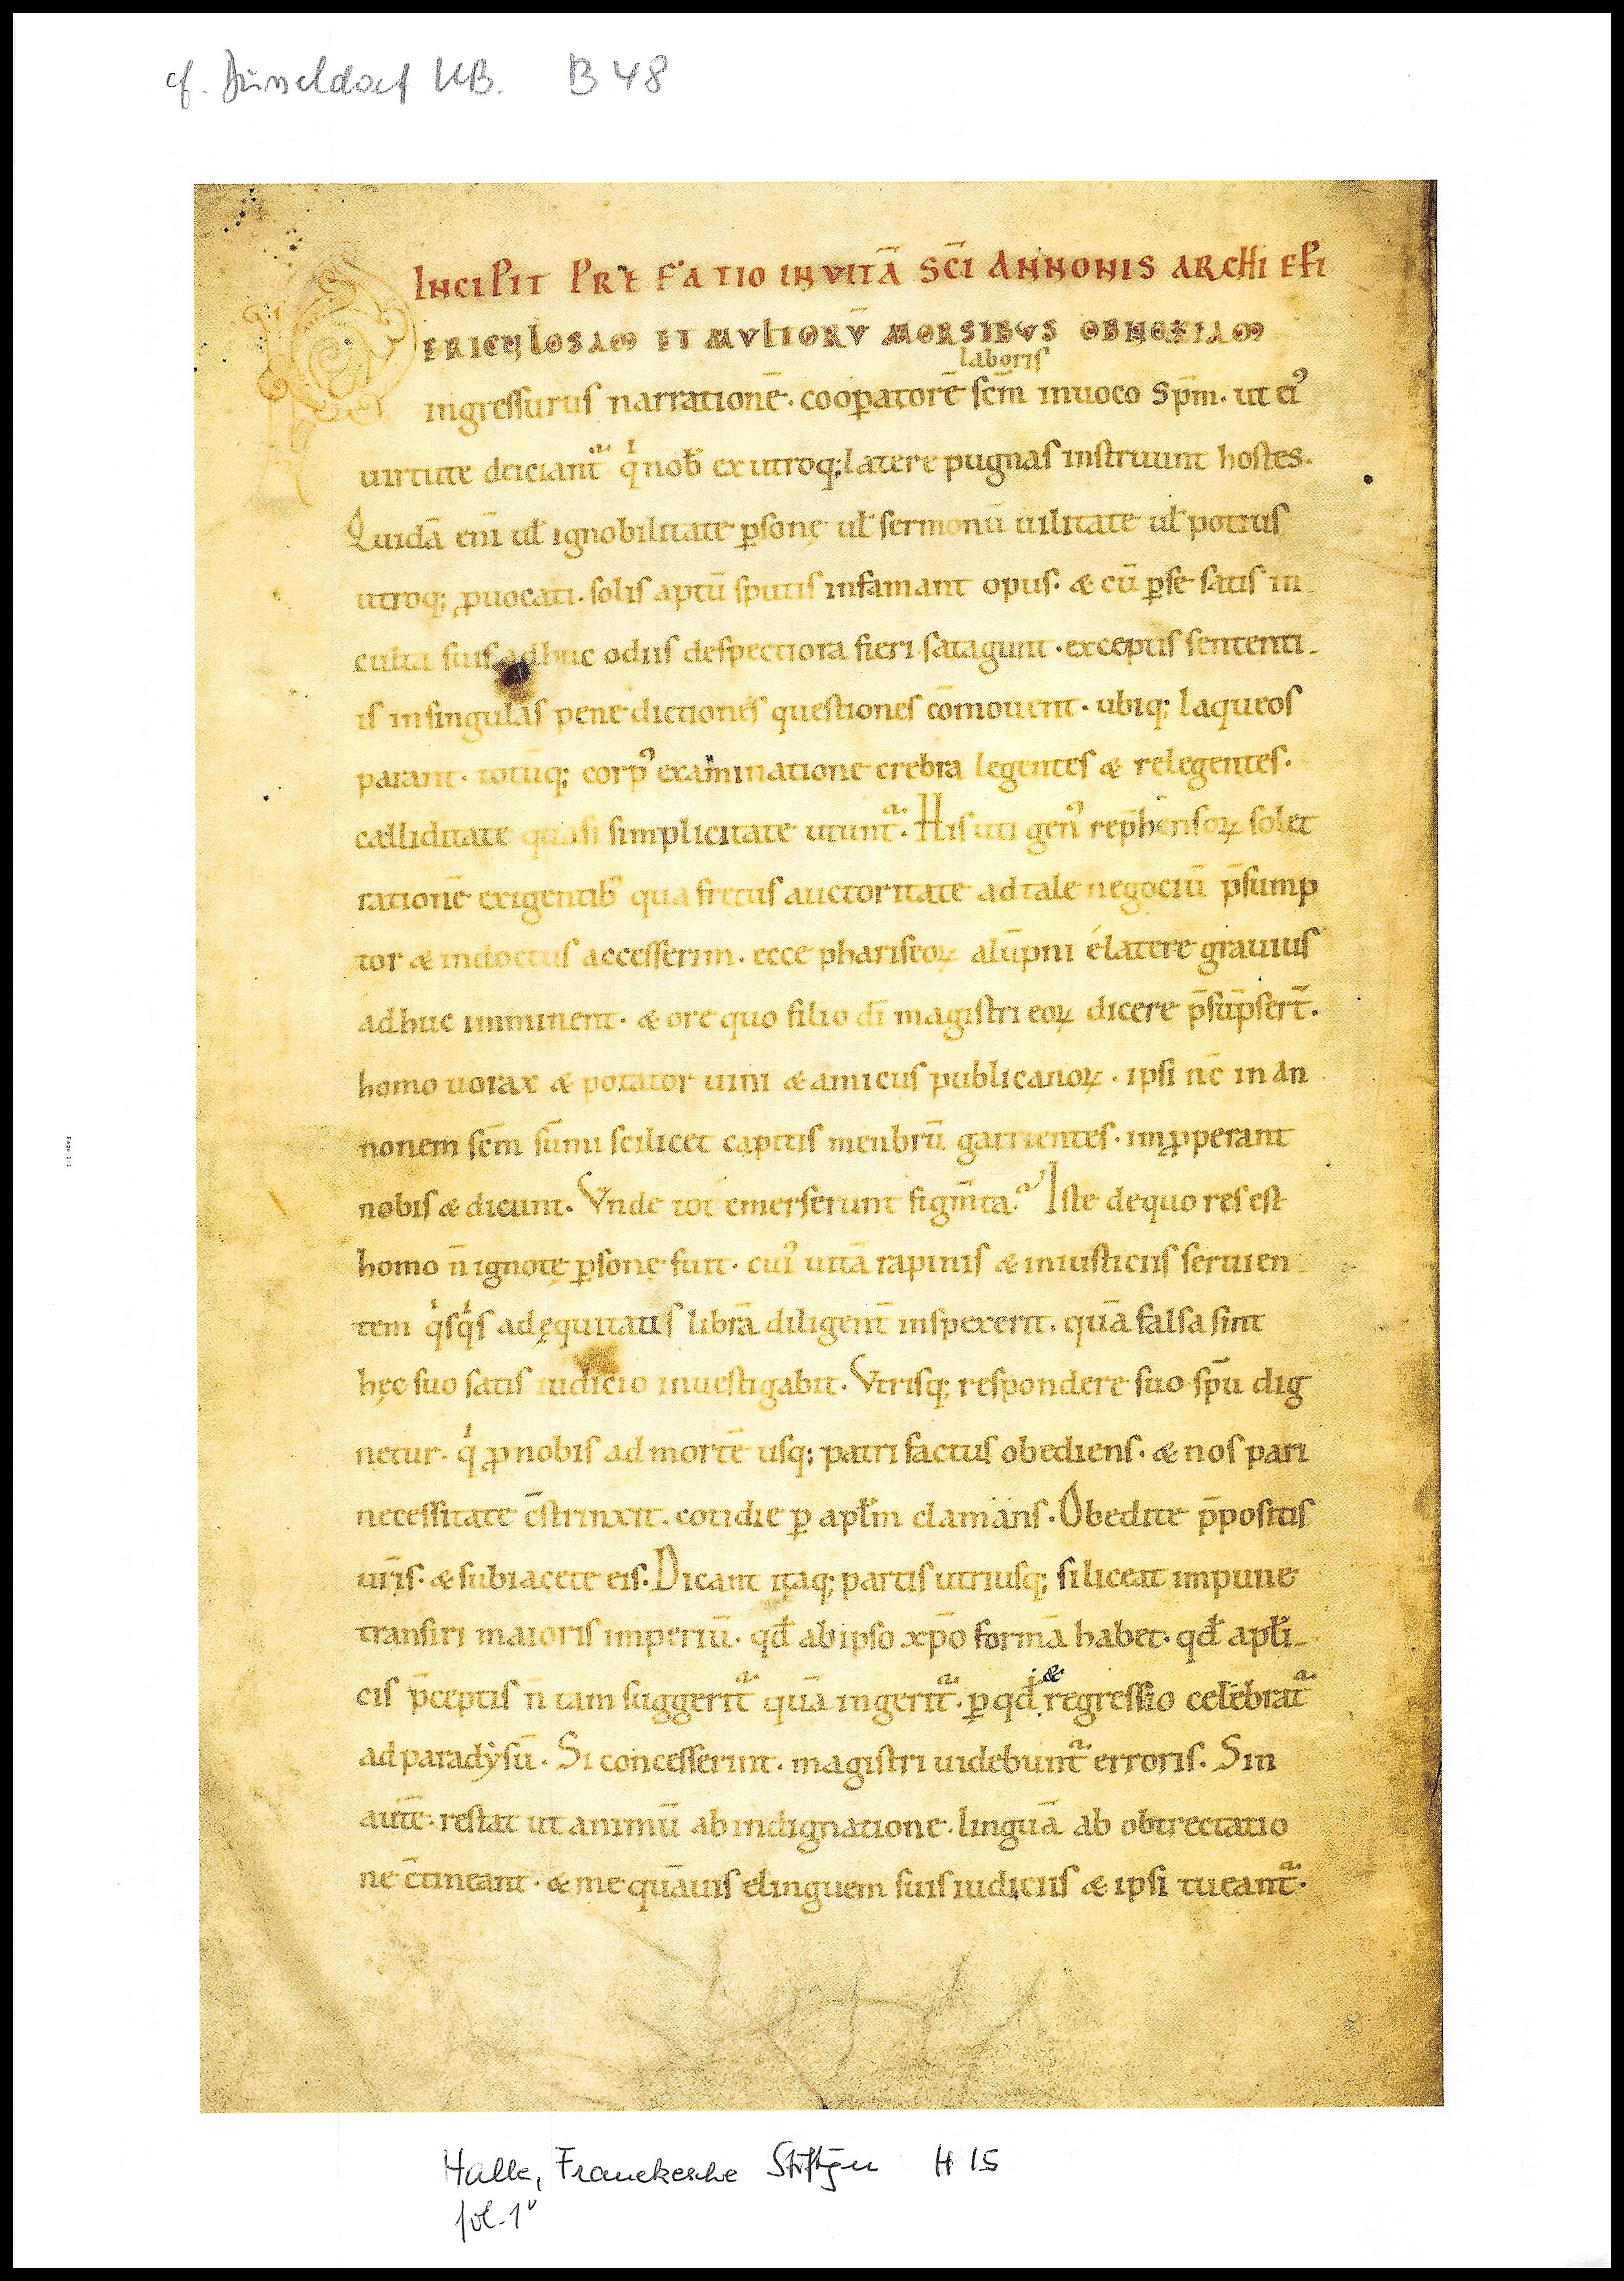 cf. Düsseldorf UB. B 48
INCIPIT PREFATIO IN VITĀ SC̄I ANNONIS ARCHIEP̄I
PERICULOSAM ET MULTORŪ MORSIBUS OBNOXIAM
laboris
ingressurus narrationē. cooꝑatorē sc̄m inuoco Sp̄m. ut ei᾽
uirtute deiciantᷓ qͥ nob̄ ex utroq; latere pugnas instruunt hostes.
Quidā eni ul̄ ignobilitate ꝑsonę ul̄ sermonū uilitate ul̄ potius
utroq; ꝓuocati. solis aptū sputis infamant opus. & cū ꝑ se satis in
culta suis adhuc odiis despectiora fieri satagunt. exceptis sententi
is in singulas pene dictiones questiones cōmouent. ubiq; laqueos
parant. totūq; corp᾽ examinatione crebra legentes & relegentes.
calliditate quasi simplicitate utuntᷓ. His uti gen᾽ rep̄hensoꝝ solet
rationē exigentib᾽ qua fretus auctoritate ad tale negociū p̄sump
tor & indoctus accesserim. ecce phariseoꝝ alūpni é latere grauius
adhuc imminent. & ore quo filio dī magistri eoꝝ dicere p̄sūpsert̄.
homo uorax & potator uini & amicus publicanoꝝ. ipsi nc̄ in an
nonem sc̄m sūmi scilicet capitis menbrū garrientes. imꝓperant
nobis & dicunt. Vnde tot emerserunt figm̄ta? Iste de quo res est
homo n̄ ignotę ꝑsonę fuit. cui᾽ uitā rapinis & iniusticiis seruien
tem qͥsqͥs ad ęquitatis librā diligent̄ inspexerit. quā falsa sint
hęc suo satis iudicio inuestigabit. Vtrisq; respondere suo sp̄u dig
netur. qͥ ꝓ nobis ad mortē usq; patri factus obediens. & nos pari
necessitate c̄strinxit. cotidie ꝑ apl̄m clamans. Obedite p̄positis
ur̄is. & subiacete eis. Dicant itaq; partis utriusq; si liceat impune
transiri maioris imperiū. qd̄ ab ipso xp̄o formā habet. qd̄ apl̄i
cis p̄ceptis n̄ tam suggeritᷓ quā ingeritᷓ. ꝑ qd̄ & regressio celebratᷓ
ad paradysū. Si concesserint. magistri uidebuntᷓ erroris. Sin
autē. restat ut animū ab indignatione. linguā ab obtrectatio
ne c̄tineant. & me quāuis elinguem suis iudiciis & ipsi tueantᷓ.
Halle, Franckesche Stiftgen H 15
fol. 1ᵛ